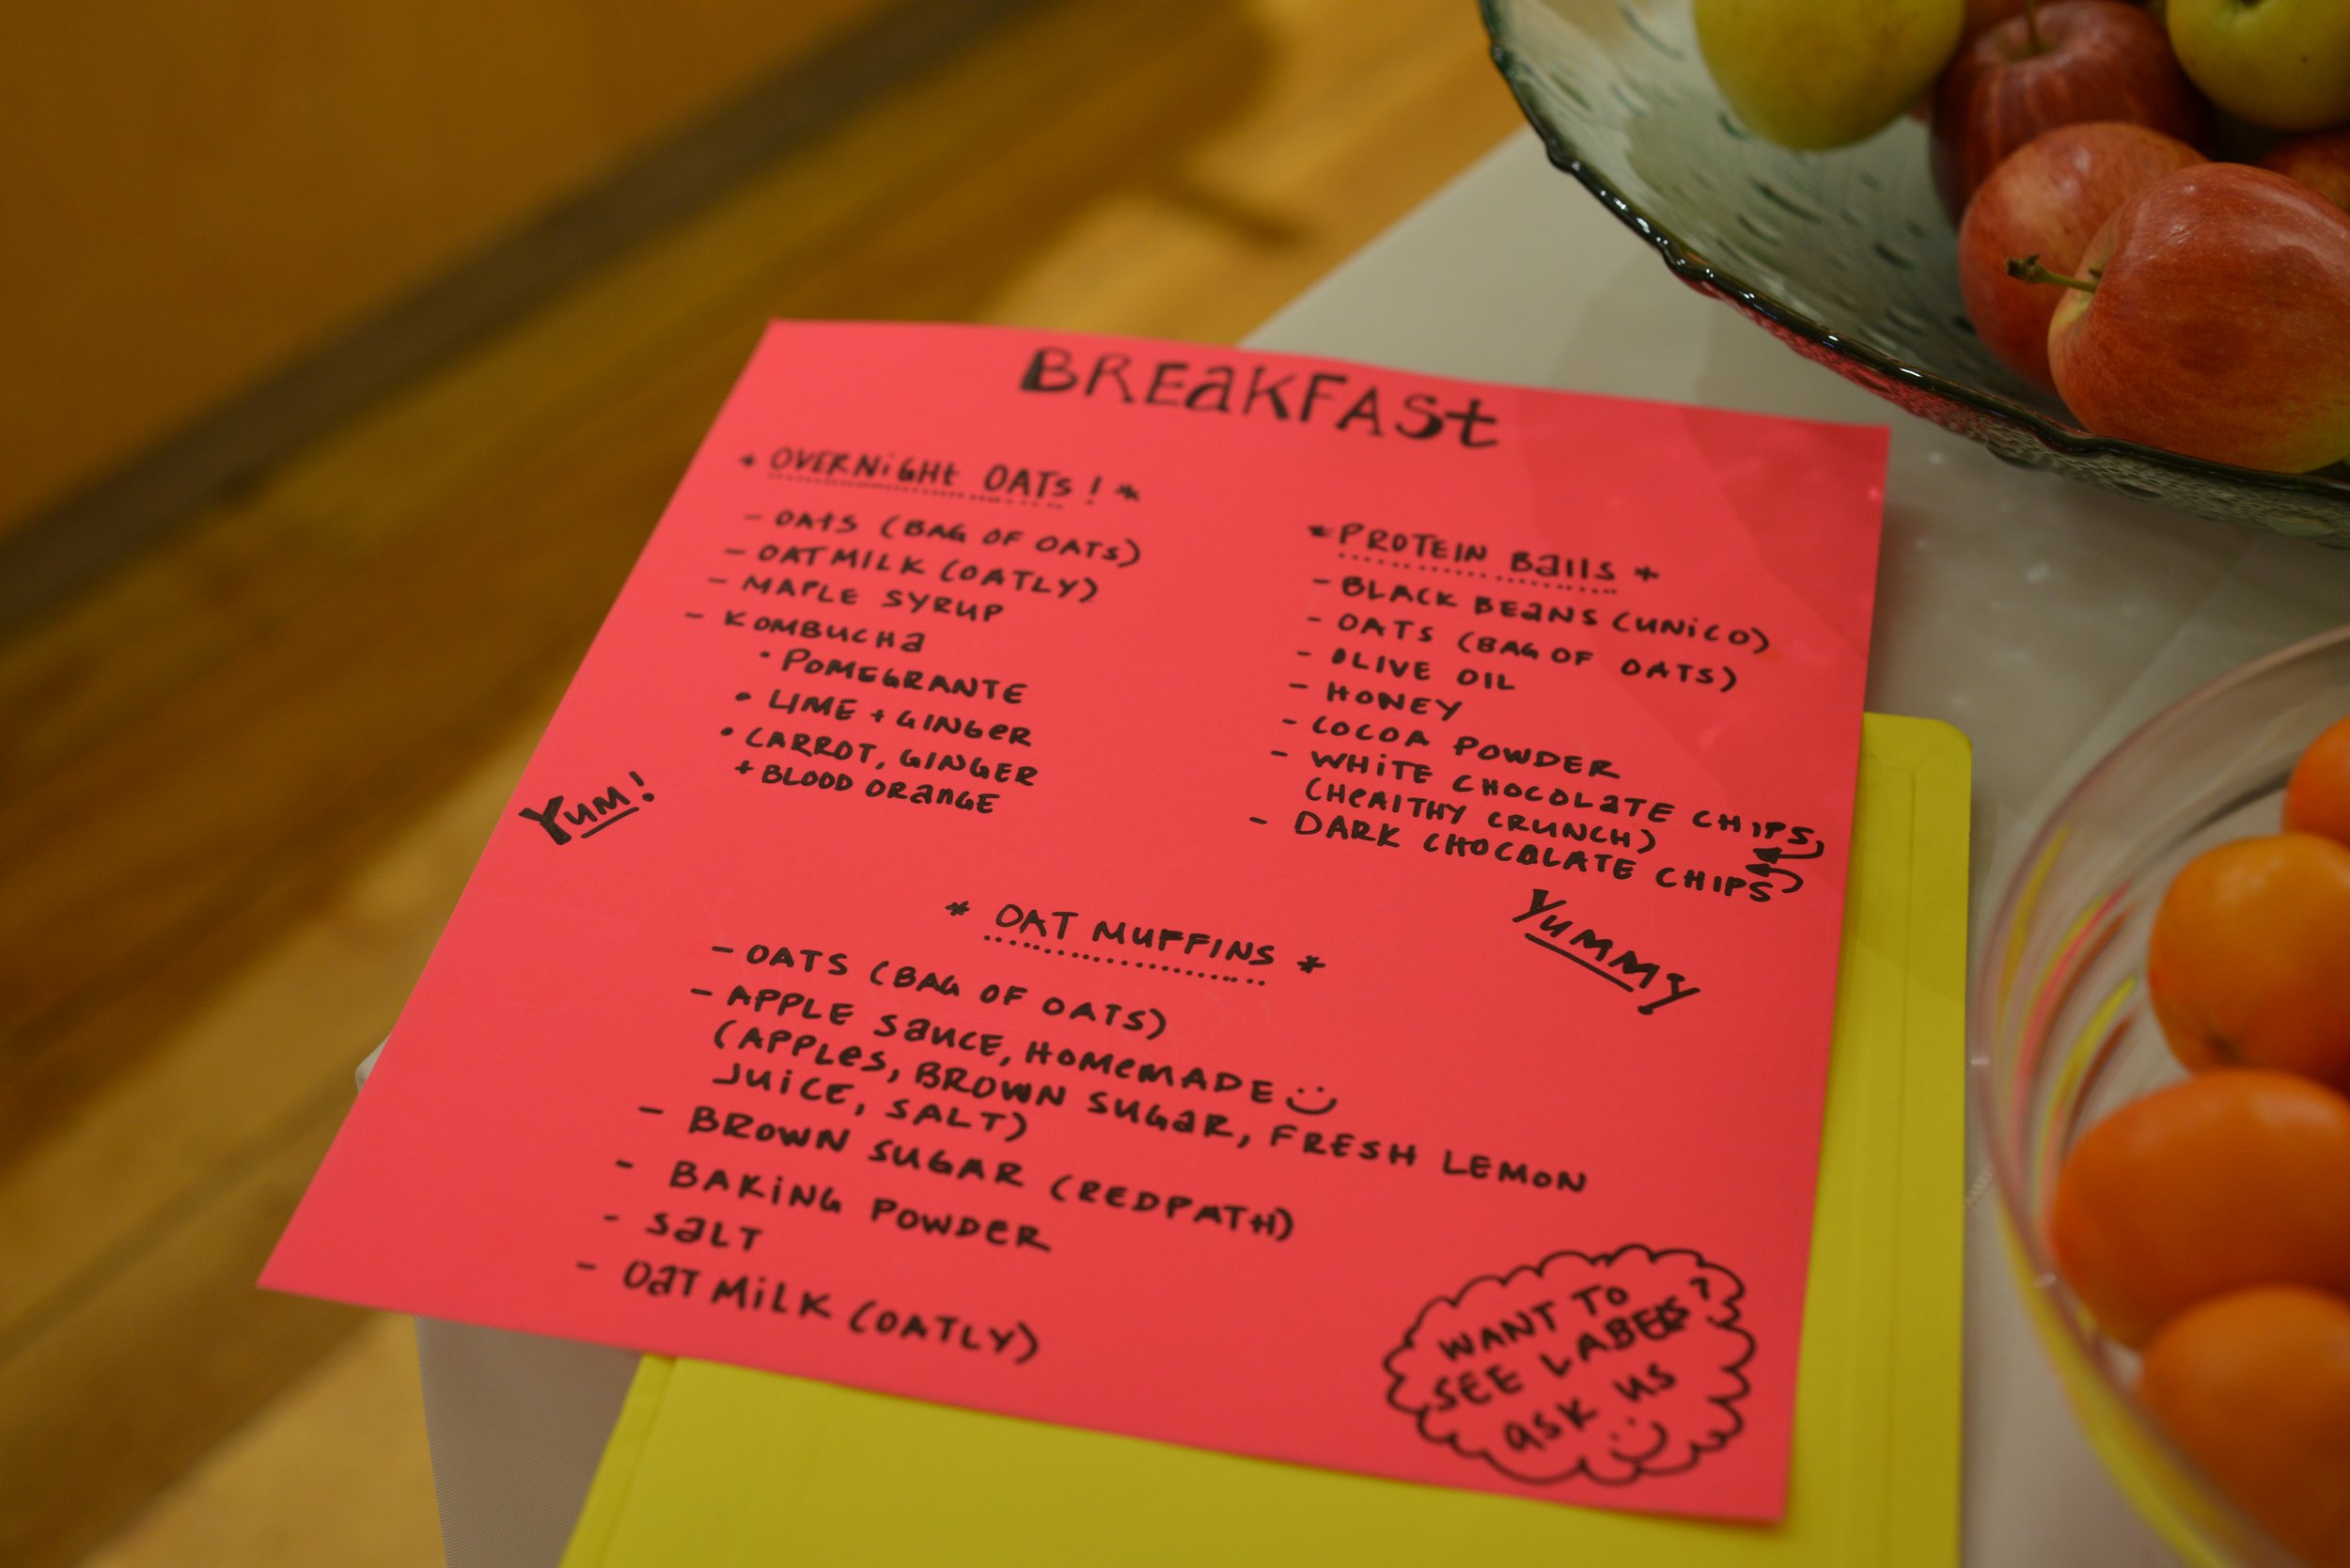 BREAKFASt
* OVERNiGHt OATs! *
- OAtS (BAG OF OATS)
- OATMILK (OATLY)
- MAPLE SYRUP
- KOMBUCHa
• POMEGRANTE
• LIME + GINGeR
• CARROT, GINGER
+ BLOOD ORanGE
YUM!
* PROTEIN Balls *
- BLACK BEaNS (UNiCO)
- OATS (BAG OF OATS)
- OLIVE OIL
- HONEY
- COCOA POWDER
- WHiTE CHOCOLaTE CHIPS
(HeAlTHY CRUNCH)
- DARK CHOCOLATE CHIPS
YUMMY
* OAT MUFFINS *
- OATS (BAG OF OATS)
- APPLE SaUCE, HOMeMADE :)
(APPLeS, BROWN SUGaR, FRESH LEMON
JUiCE, SALT)
- BROWN SUGAR (REDPATH)
- BAKiNG POWDeR
- SaLT
- OaT MiLK (OATLY)
WANT TO
SEE LABELS?
aSK US
:)